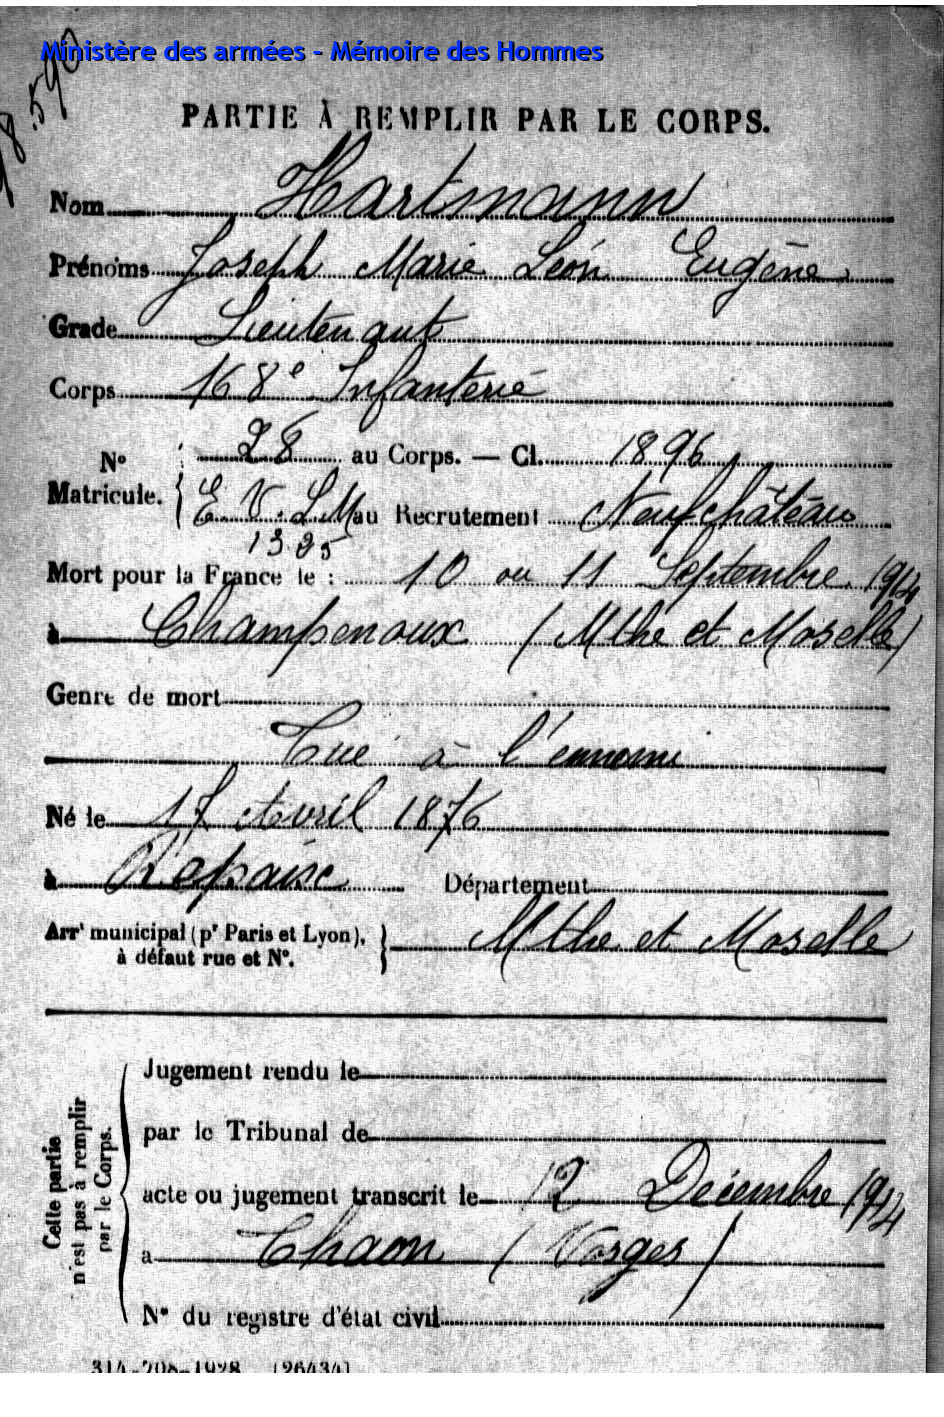 Ministère des armées - Mémoire des Hommes
PARTIE À REMPLIR PAR LE CORPS.
Nom Hartmann
Prénoms Joseph Marie Léon Eugène
Grade Lieutenant
Corps 168e Infanterie
No 28 au Corps. — Cl. 1896
Matricule. E. V. L M au Recrutement Neufchâteau
1325
Mort pour la France le : 10 ou 11 Septembre 1914
à Champenoux (Mthe et Moselle)
Genre de mort
Tué à l'ennemi
Né le 17 Avril 1876
à Repaix Département
Arrt municipal (pr Paris et Lyon), à défaut rue et No. Mthe et Moselle
Cette partie n'est pas à remplir par le Corps.
Jugement rendu le
par le Tribunal de
acte ou jugement transcrit le 12 Décembre 1914
a Chaon (Vosges)
No du registre d'état civil
314-708-1928. [26434]